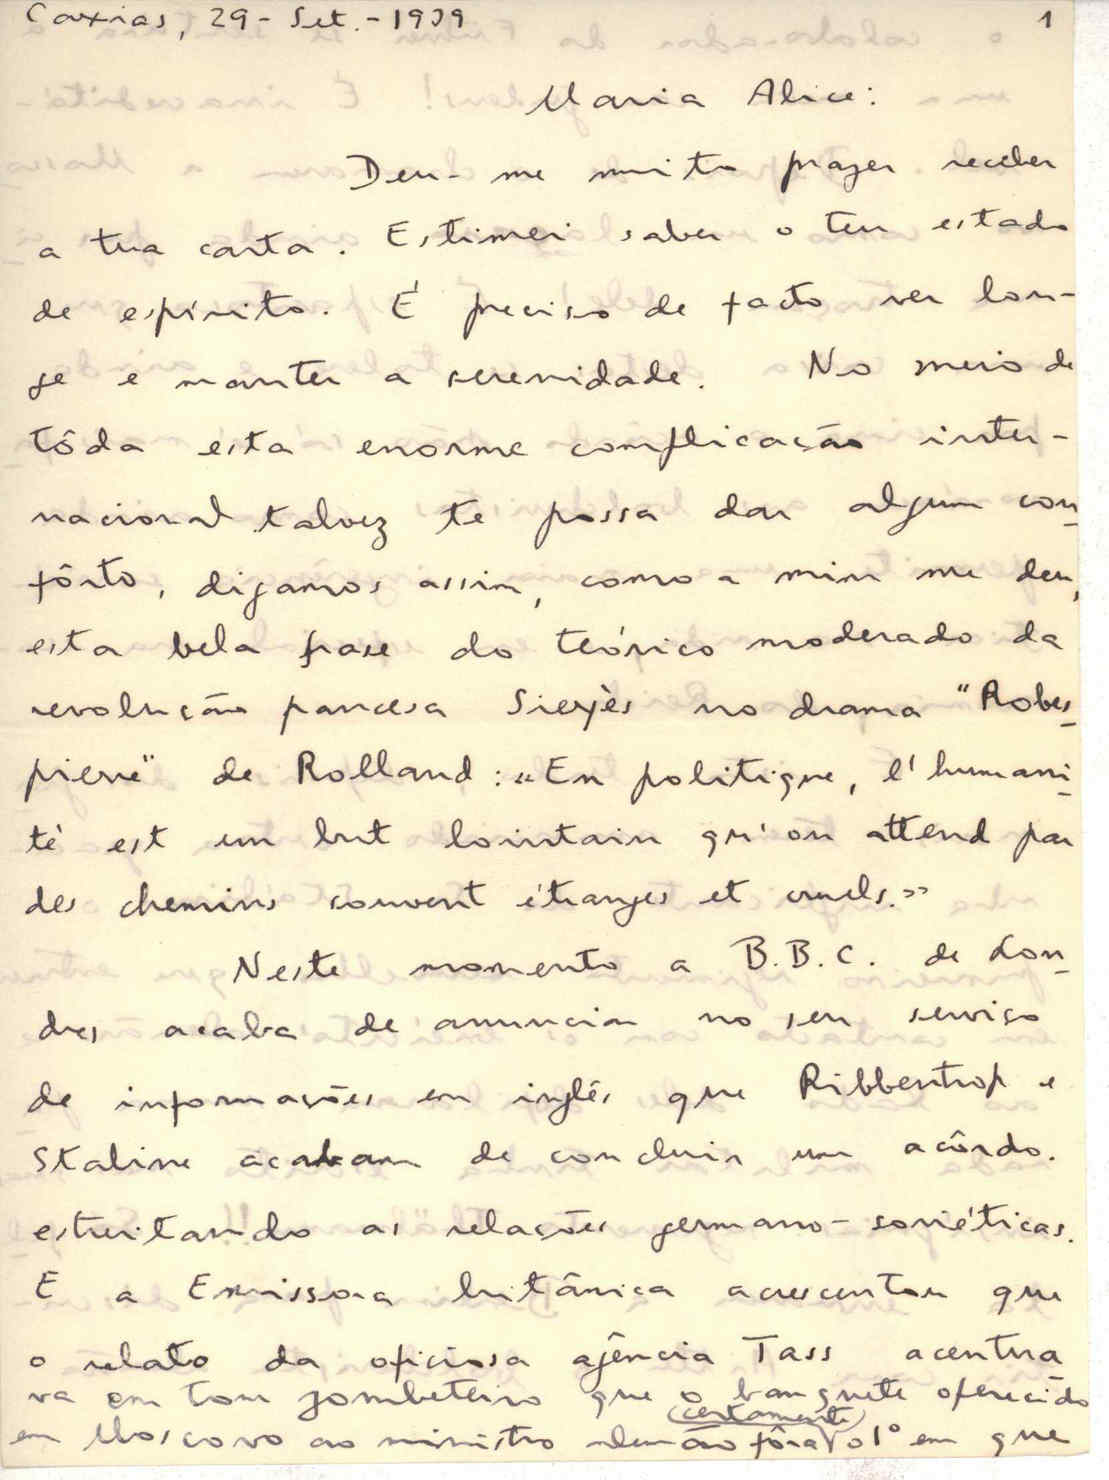 Caxias, 29 - Set. - 1939
1
Maria Alice:
Deu-me muito prazer receber
a tua carta. Estimei saber o teu estado
de espírito. É preciso de facto ver lon-
ge e manter a serenidade. No meio de
tôda esta enorme complicação inter-
nacional talvez te possa dar algum con-
fôrto, digamos assim, como a mim me deu,
esta bela frase do teórico moderado da
revolução francesa Sieyès no drama "Robes-
pierre" de Rolland: «En politique, l'humani-
té est un but lointain qu'on attend par
des chemins souvent étranges et cruels.»
Neste momento a B.B.C. de Lon-
dres acaba de anunciar no seu serviço
de informações em inglês que Ribbentrop e
Staline acabam de concluir um acôrdo.
estreitando as relações germano-soviéticas.
E a Emissora britânica acrescentou que
o relato da oficiosa agência Tass acentua
va em tom zombeteiro que o banquete oferecido
(certamente)
em Moscovo ao ministro alemão fôra o 1º em que